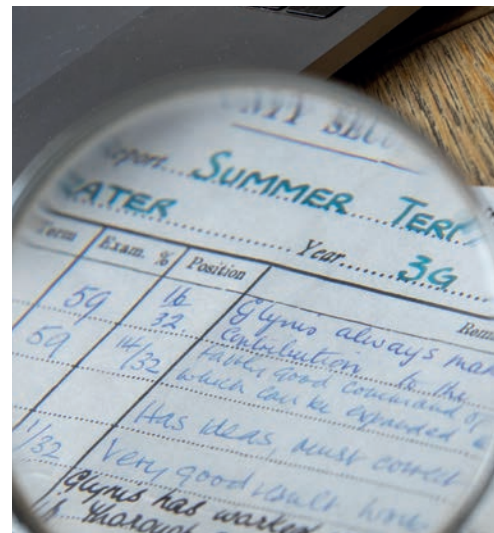 NTY SEC
Report SUMMER TERM
EATER
Year 3G
Term Exam. % Position Rem
59 16 Glynis always ma
32. contribution to the
59 14/32 Fairly good command of
which can be expanded
Has ideas, must correct
1/32 Very good result
Glynis has worked
thorough